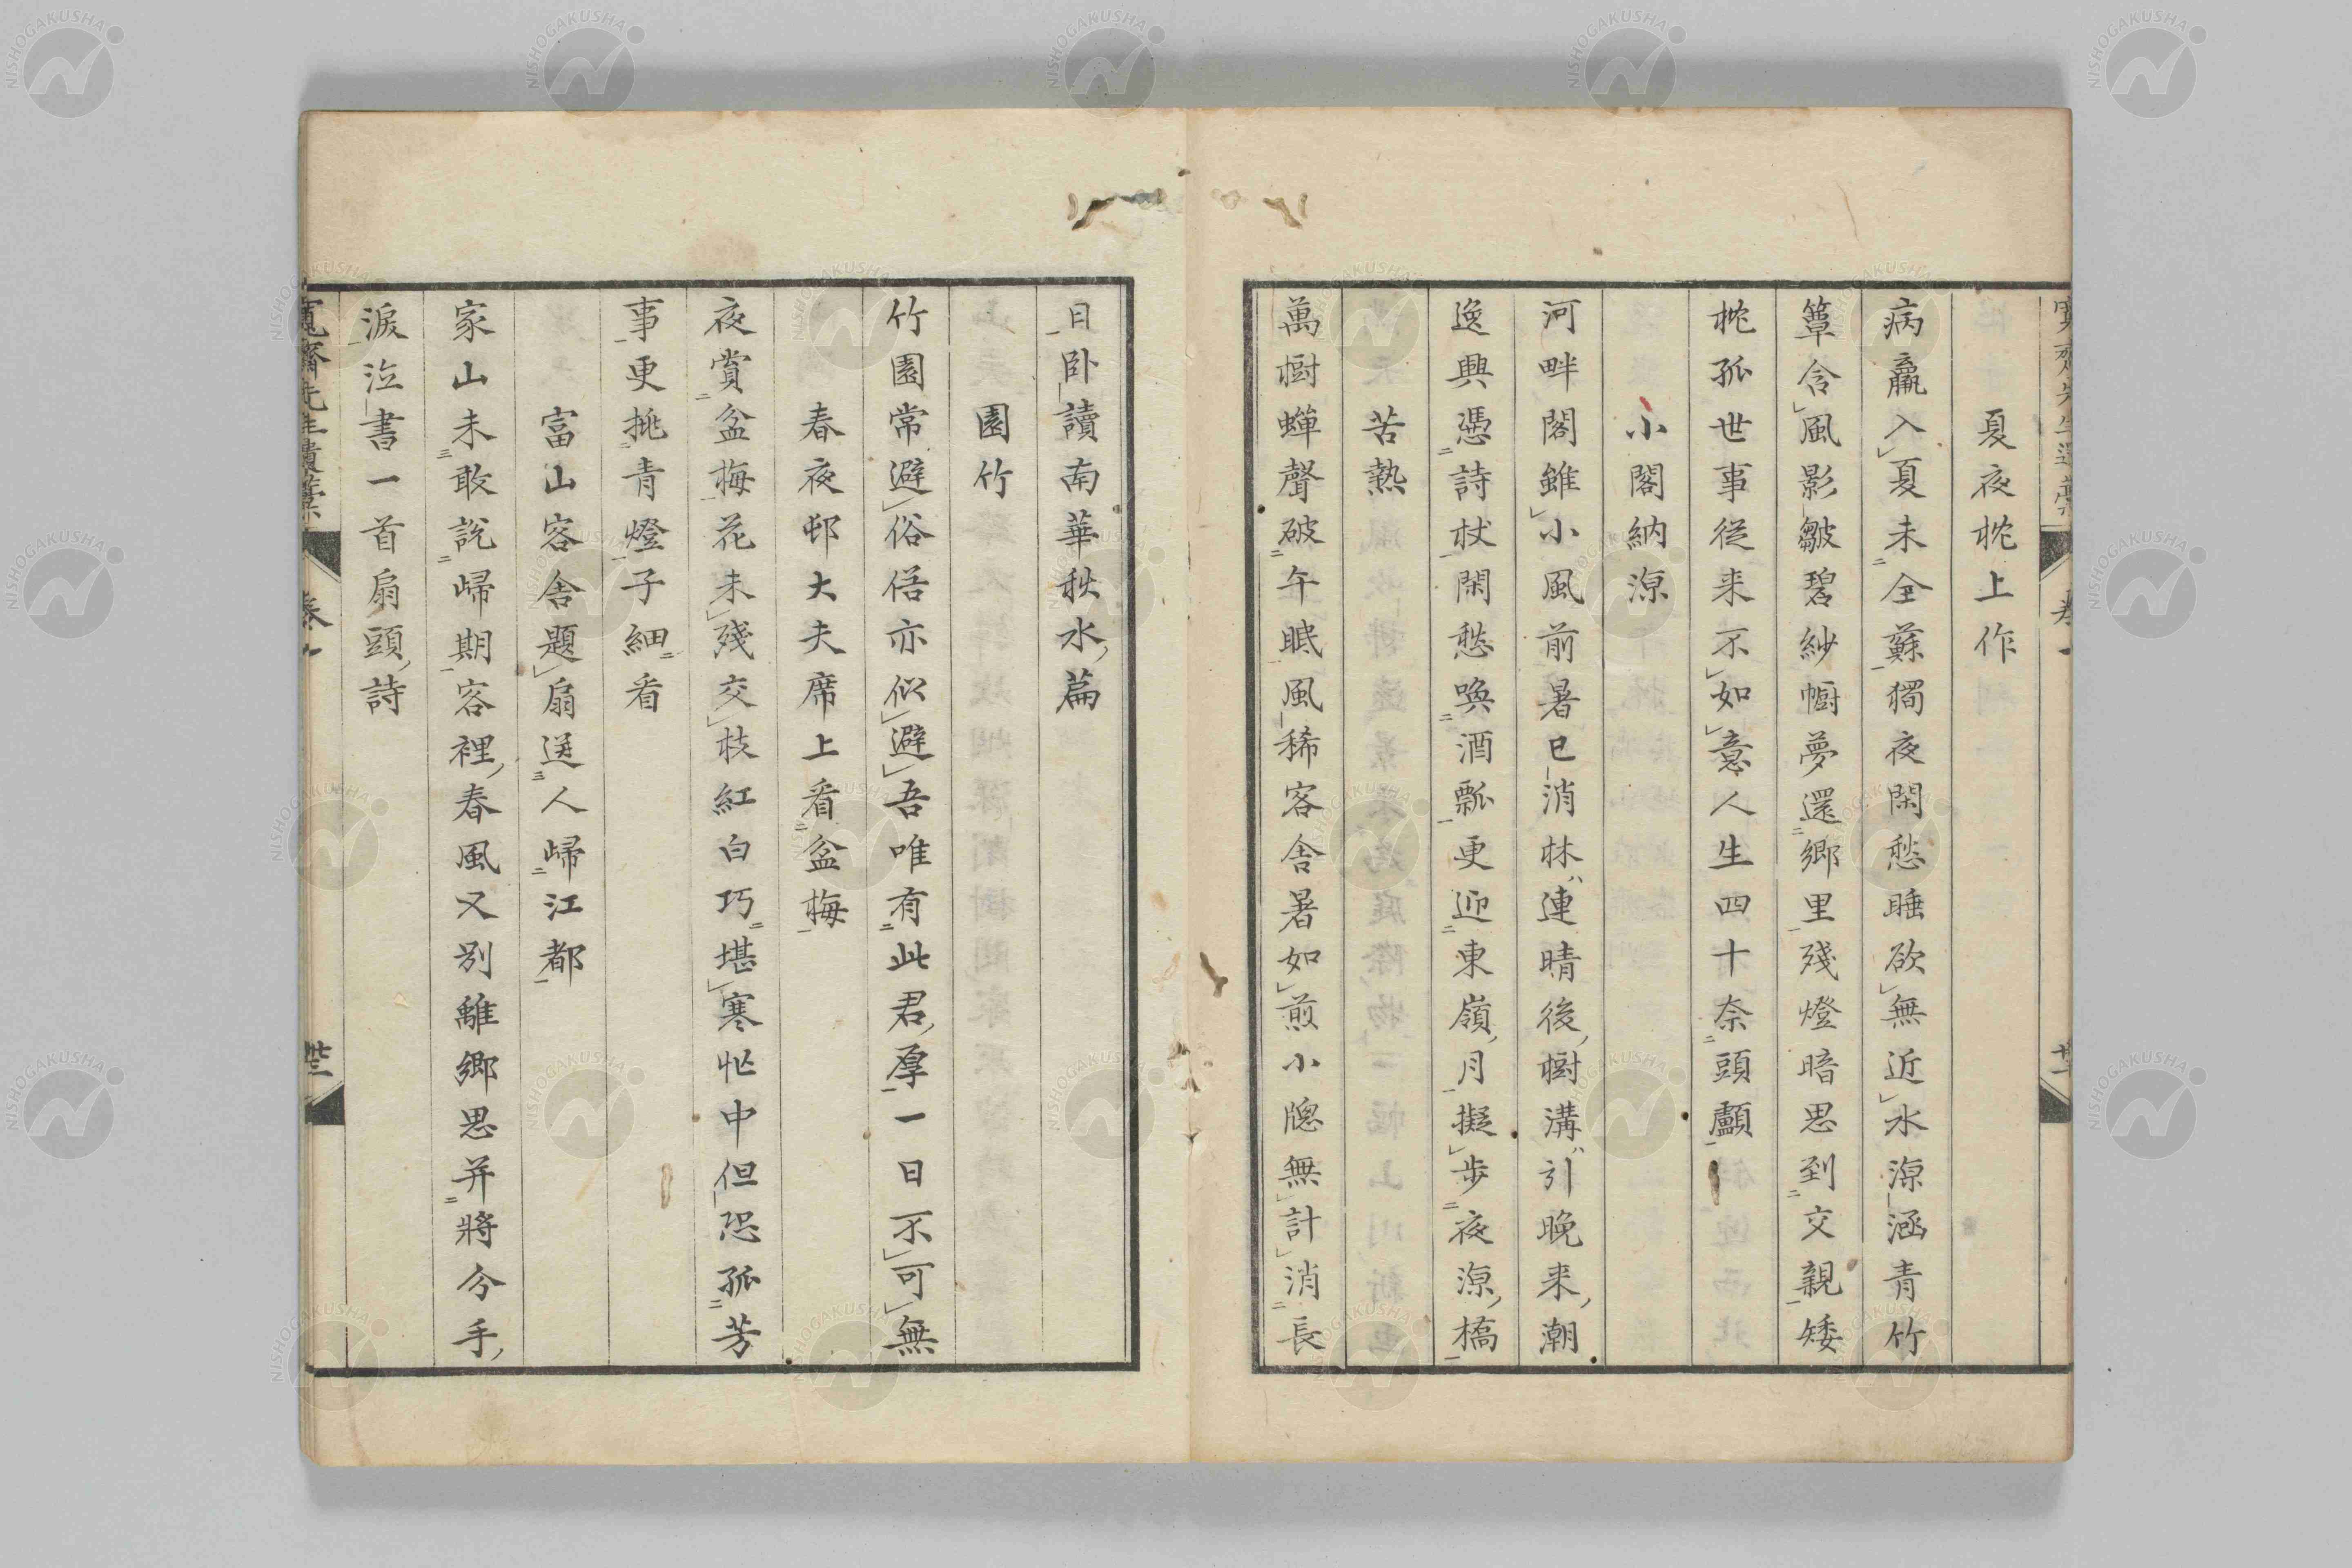 夏夜枕上作
病羸入夏未全蘇獨夜閑愁睡欲無近水涼涵青竹
簟含風影皺碧紗幮夢還鄉里殘燈暗思到交親矮
枕孤世事從来不如意人生四十奈頭顱
小閣納涼
河畔閣雖小風前暑已消林連晴後樹溝引晚来潮
逸興憑詩杖閑愁喚酒瓢更迎東嶺月擬步夜涼橋
苦熱
萬樹蟬聲破午眠風稀客舍暑如煎小窓無計消長
日卧讀南華秋水篇
園竹
竹園常避俗俗亦似避吾唯有此君厚一日不可無
春夜邨大夫席上看盆梅
夜賞盆梅花未殘交枝紅白巧堪寒忙中但恐孤芳
事更挑青燈子細看
富山客舍題扇送人歸江都
家山未敢說歸期客裡春風又別離鄉思并將今手
淚泣書一首扇頭詩
寬齋先生遺藁
卷一